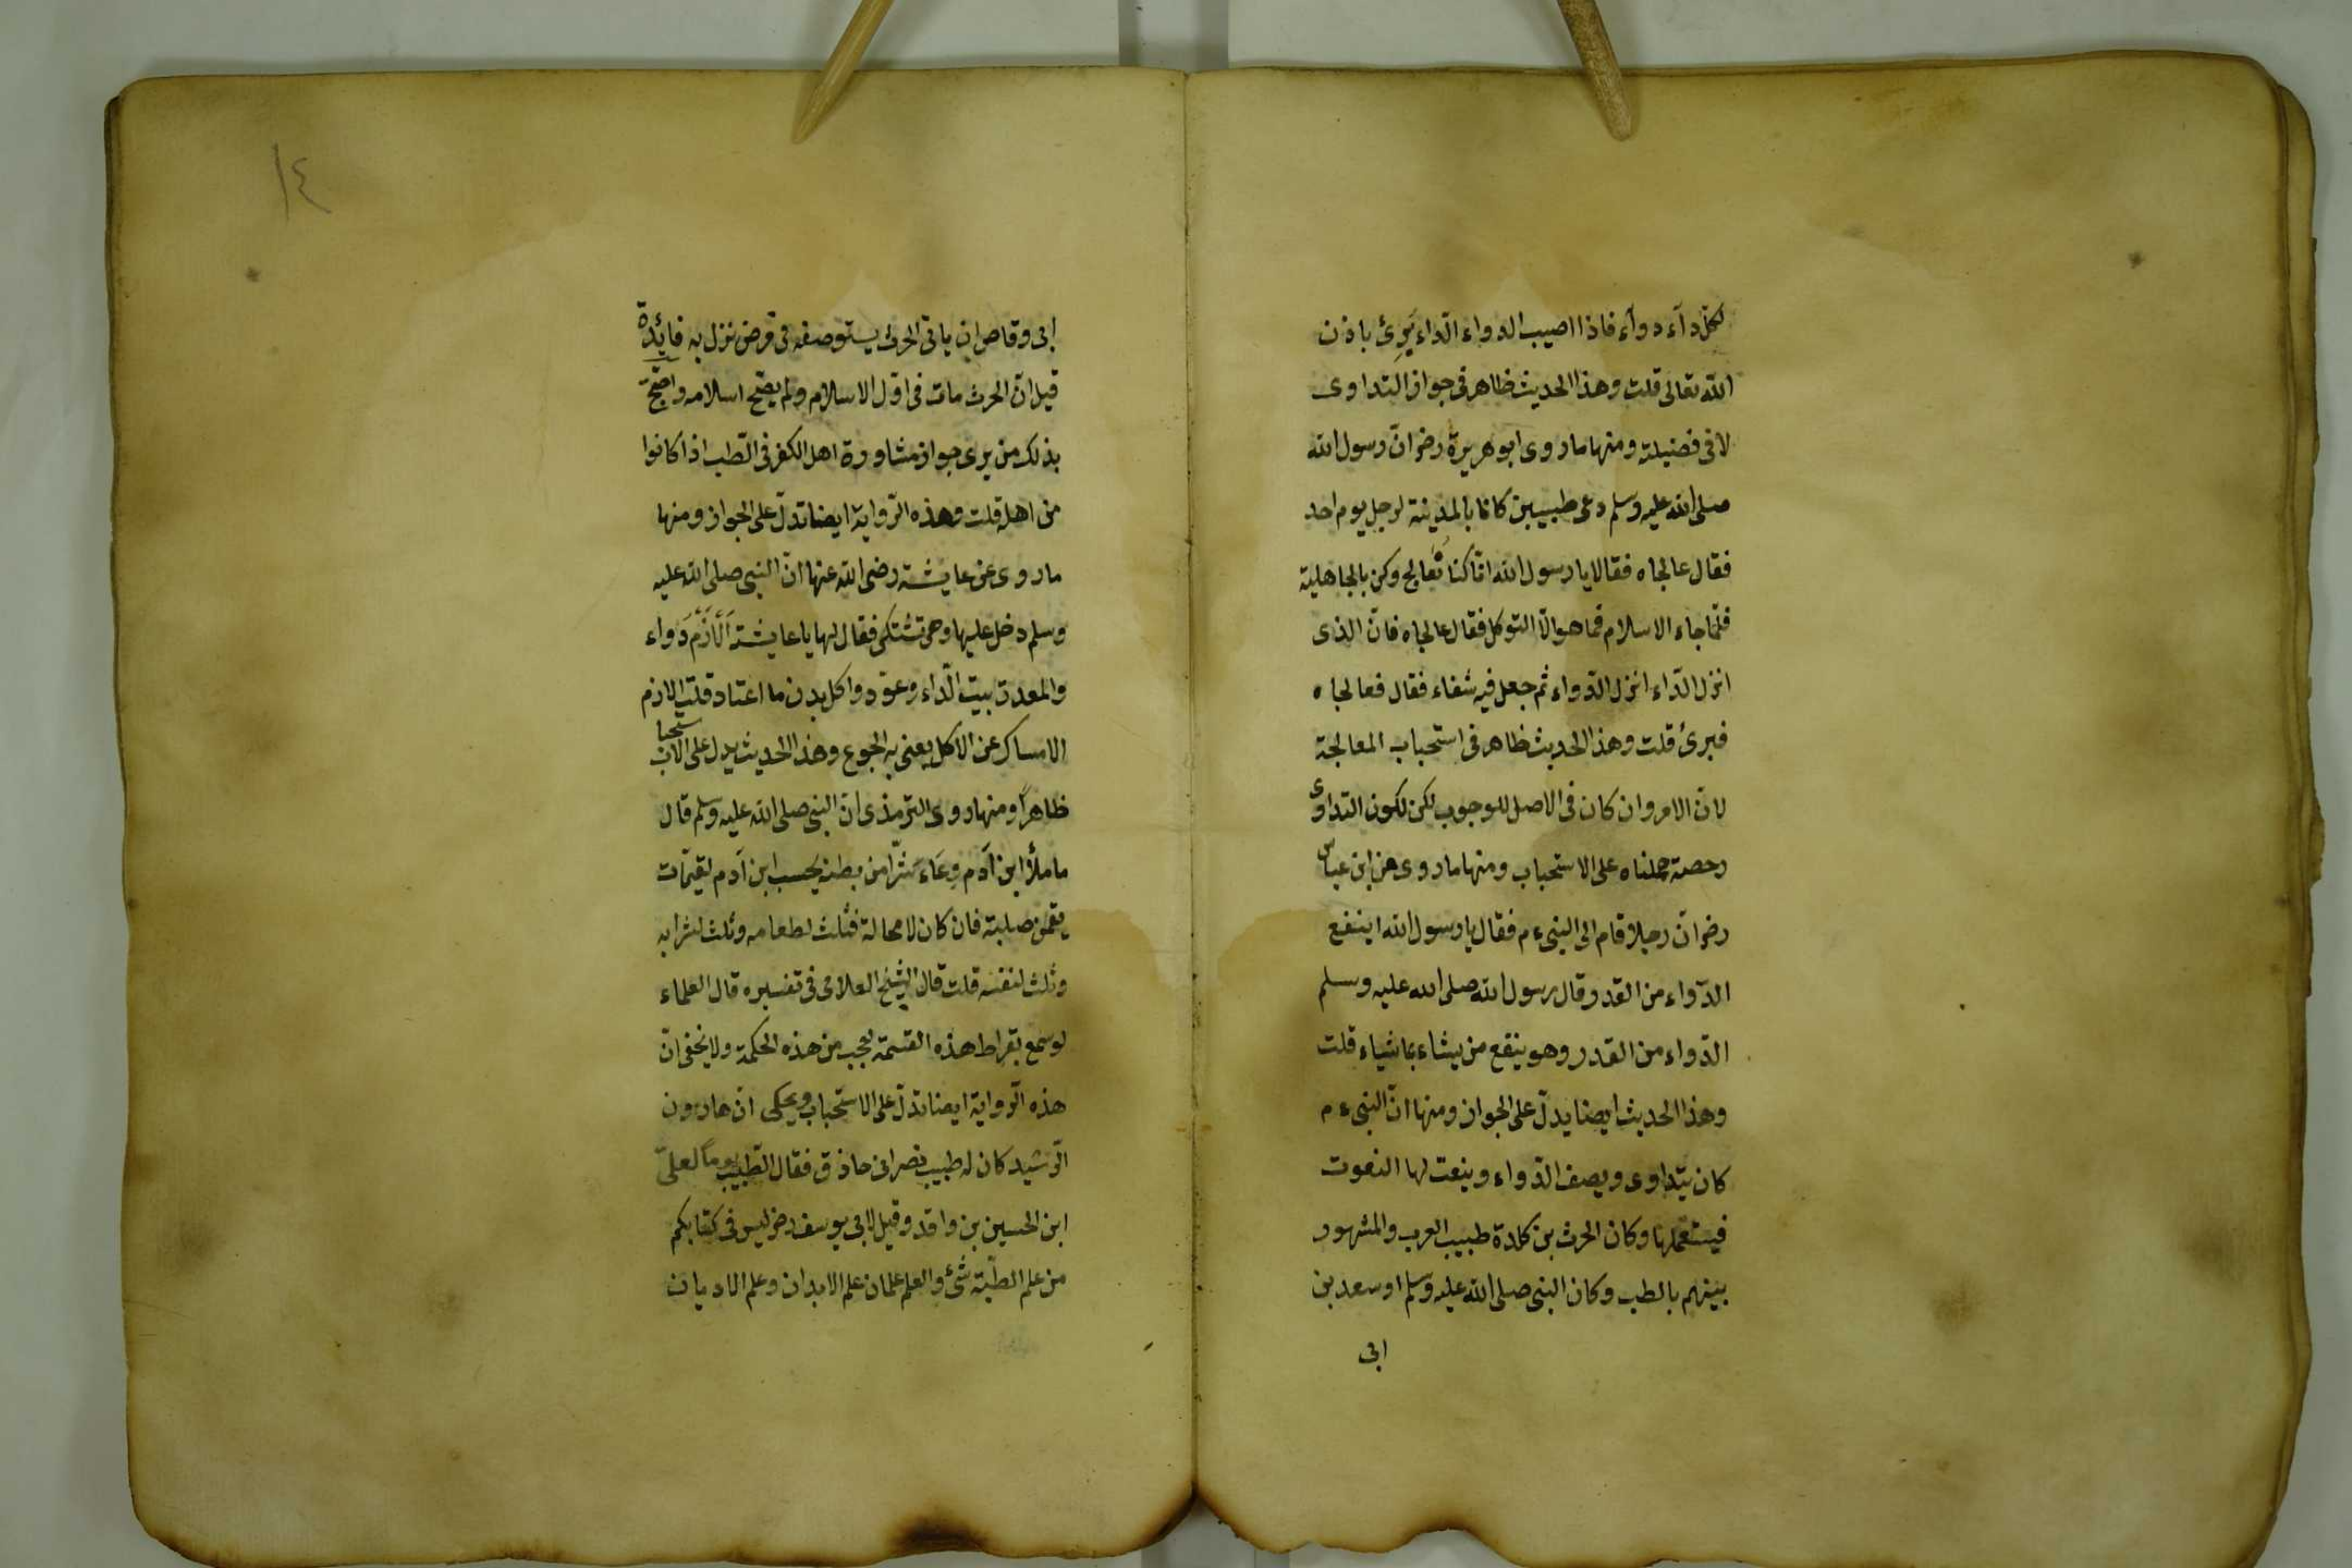 لكلّ دآء دوآء فاذا اصيب الدواء الدّاء برئ باذن
الله تعالى قلت وهذا الحديث ظاهر فى جواز التداوى
لا فى فضيلته ومنها ما روى ابو هريرة رضر انّ رسول الله
صلى الله عليه وسلم دعى طبيبين كانا بالمدينة لرجل يوم احد
فقال عالجاه فقالا يا رسول الله انّا كنا نعالج وكن بالجاهلية
فلمّا جاء الاسلام فما هو الاّ التوكل فقال عالجاه فانّ الذى
انزل الدّاء انزل الدّواء ثم جعل فيه شفاء فقال فعالجاه
فبرئ قلت وهذا الحديث ظاهر فى استحباب المعالجة
لانّ الامر وان كان فى الاصل للوجوب لكن لكون التداوى
رحصة حملناه على الاستحباب ومنها ما روى عن ابن عباس
رضر انّ رجلا قام الى النبى ءم فقال يا رسول الله اينفع
الدّواء من القدر وقال رسول الله صلى الله عليه وسلم
الدّواء من القدر وهو ينفع من يشاء بما شياء قلت
وهذا الحديث ايضا يدلّ على الجواز ومنها انّ النبى ءم
كان يتداوى ويصف الدّواء وينعت لها النعوت
فيستعملها وكان الحرث بن كلدة طبيب العرب والمشهور
بينهم بالطب وكان النبى صلى الله عليه وسلم اوسعد بن
ابى
١٤
ابى وقاص ان ياتى الحرث يستوصفه فى مرض نزل به فايدة
قيل انّ الحرث مات فى اوّل الاسلام ولم يصّح اسلامه واحتجّ
بذلك من يرى جواز مشاورة اهل الكفر فى الطّب اذا كانوا
من اهله قلت وهذه الرّواية ايضا تدلّ على الجواز ومنها
ما روى عن عايشة رضى الله عنها انّ النبى صلى الله عليه
وسلم دخل عليها وهى تشتكى فقال لها يا عايشة اَلْاَزْمُ دَواء
والمعدة بيت الدّاء وعوّدوا كل بدن ما اعتاد قلت الازم
الامساك عن الاكل يعنى به الجوع وهذا الحديث يدل على الاستحباب
ظاهراً ومنها روى الترمذى انّ النبى صلى الله عليه وسلم قال
ما ملأ ابن آدم وِعَاء شرّا من بطنه يحسب ابن آدم لقيمات
يقمن صلبته فان كان لا محالة فثلث لطعامه وثلث لشرابه
وثلث لنفسه قلت قال الشيخ العلامى فى تفسيره قال العلماء
لو سمع بقراط هذه القسمة لعجب من هذه الحكمة ولا يخفى انّ
هذه الرّواية ايضا تدلّ على الاستحباب ويحكى انّ هارون
الرّشيد كان له طبيب نصرانى حاذق فقال الطّبيب يوماً لعلىّ
ابن الحسين بن واقد وقيل لابى يوسف رضر ليس فى كتابكم
من علم الطّبّة شئ والعلم علمان علم الابدان وعلم الاديان